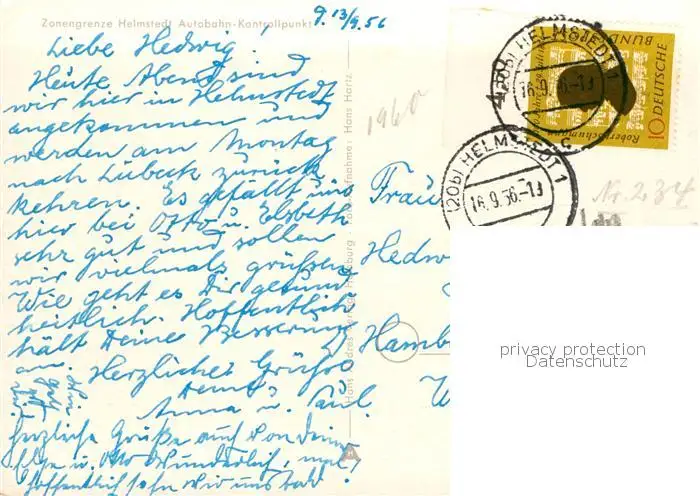 Zonengrenze Helmstedt Autobahn-Kontrollpunkt
9. 13/9.56
Liebe Hedwig!
Heute Abend sind
wir hier in Helmstedt
angekommen und
werden am Montag
nach Lübeck zurück
kehren. Es gefällt uns
hier bei Otto u. Elsbeth
sehr gut und sollen
wir vielmals grüßen
Wie geht es Dir gesund
heitlich. Hoffentlich
hält Deine Besserung
an.
Herzliche Grüße
Deine
Anna u. Paul
herzliche Grüße auch von deiner
u. Otto Wunderlich,
hoffentlich sehn wir uns bald.
Hans Hartz
1960
Frau
Hedw
Hamb
W
(20b) HELMSTEDT 1
16.9.56.-19
c
(20b) HELMSTEDT 1
16.9.56.-19
DEUTSCHE
BUNDES
10
Robert Schumann
Nr. 234
privacy protection
Datenschutz